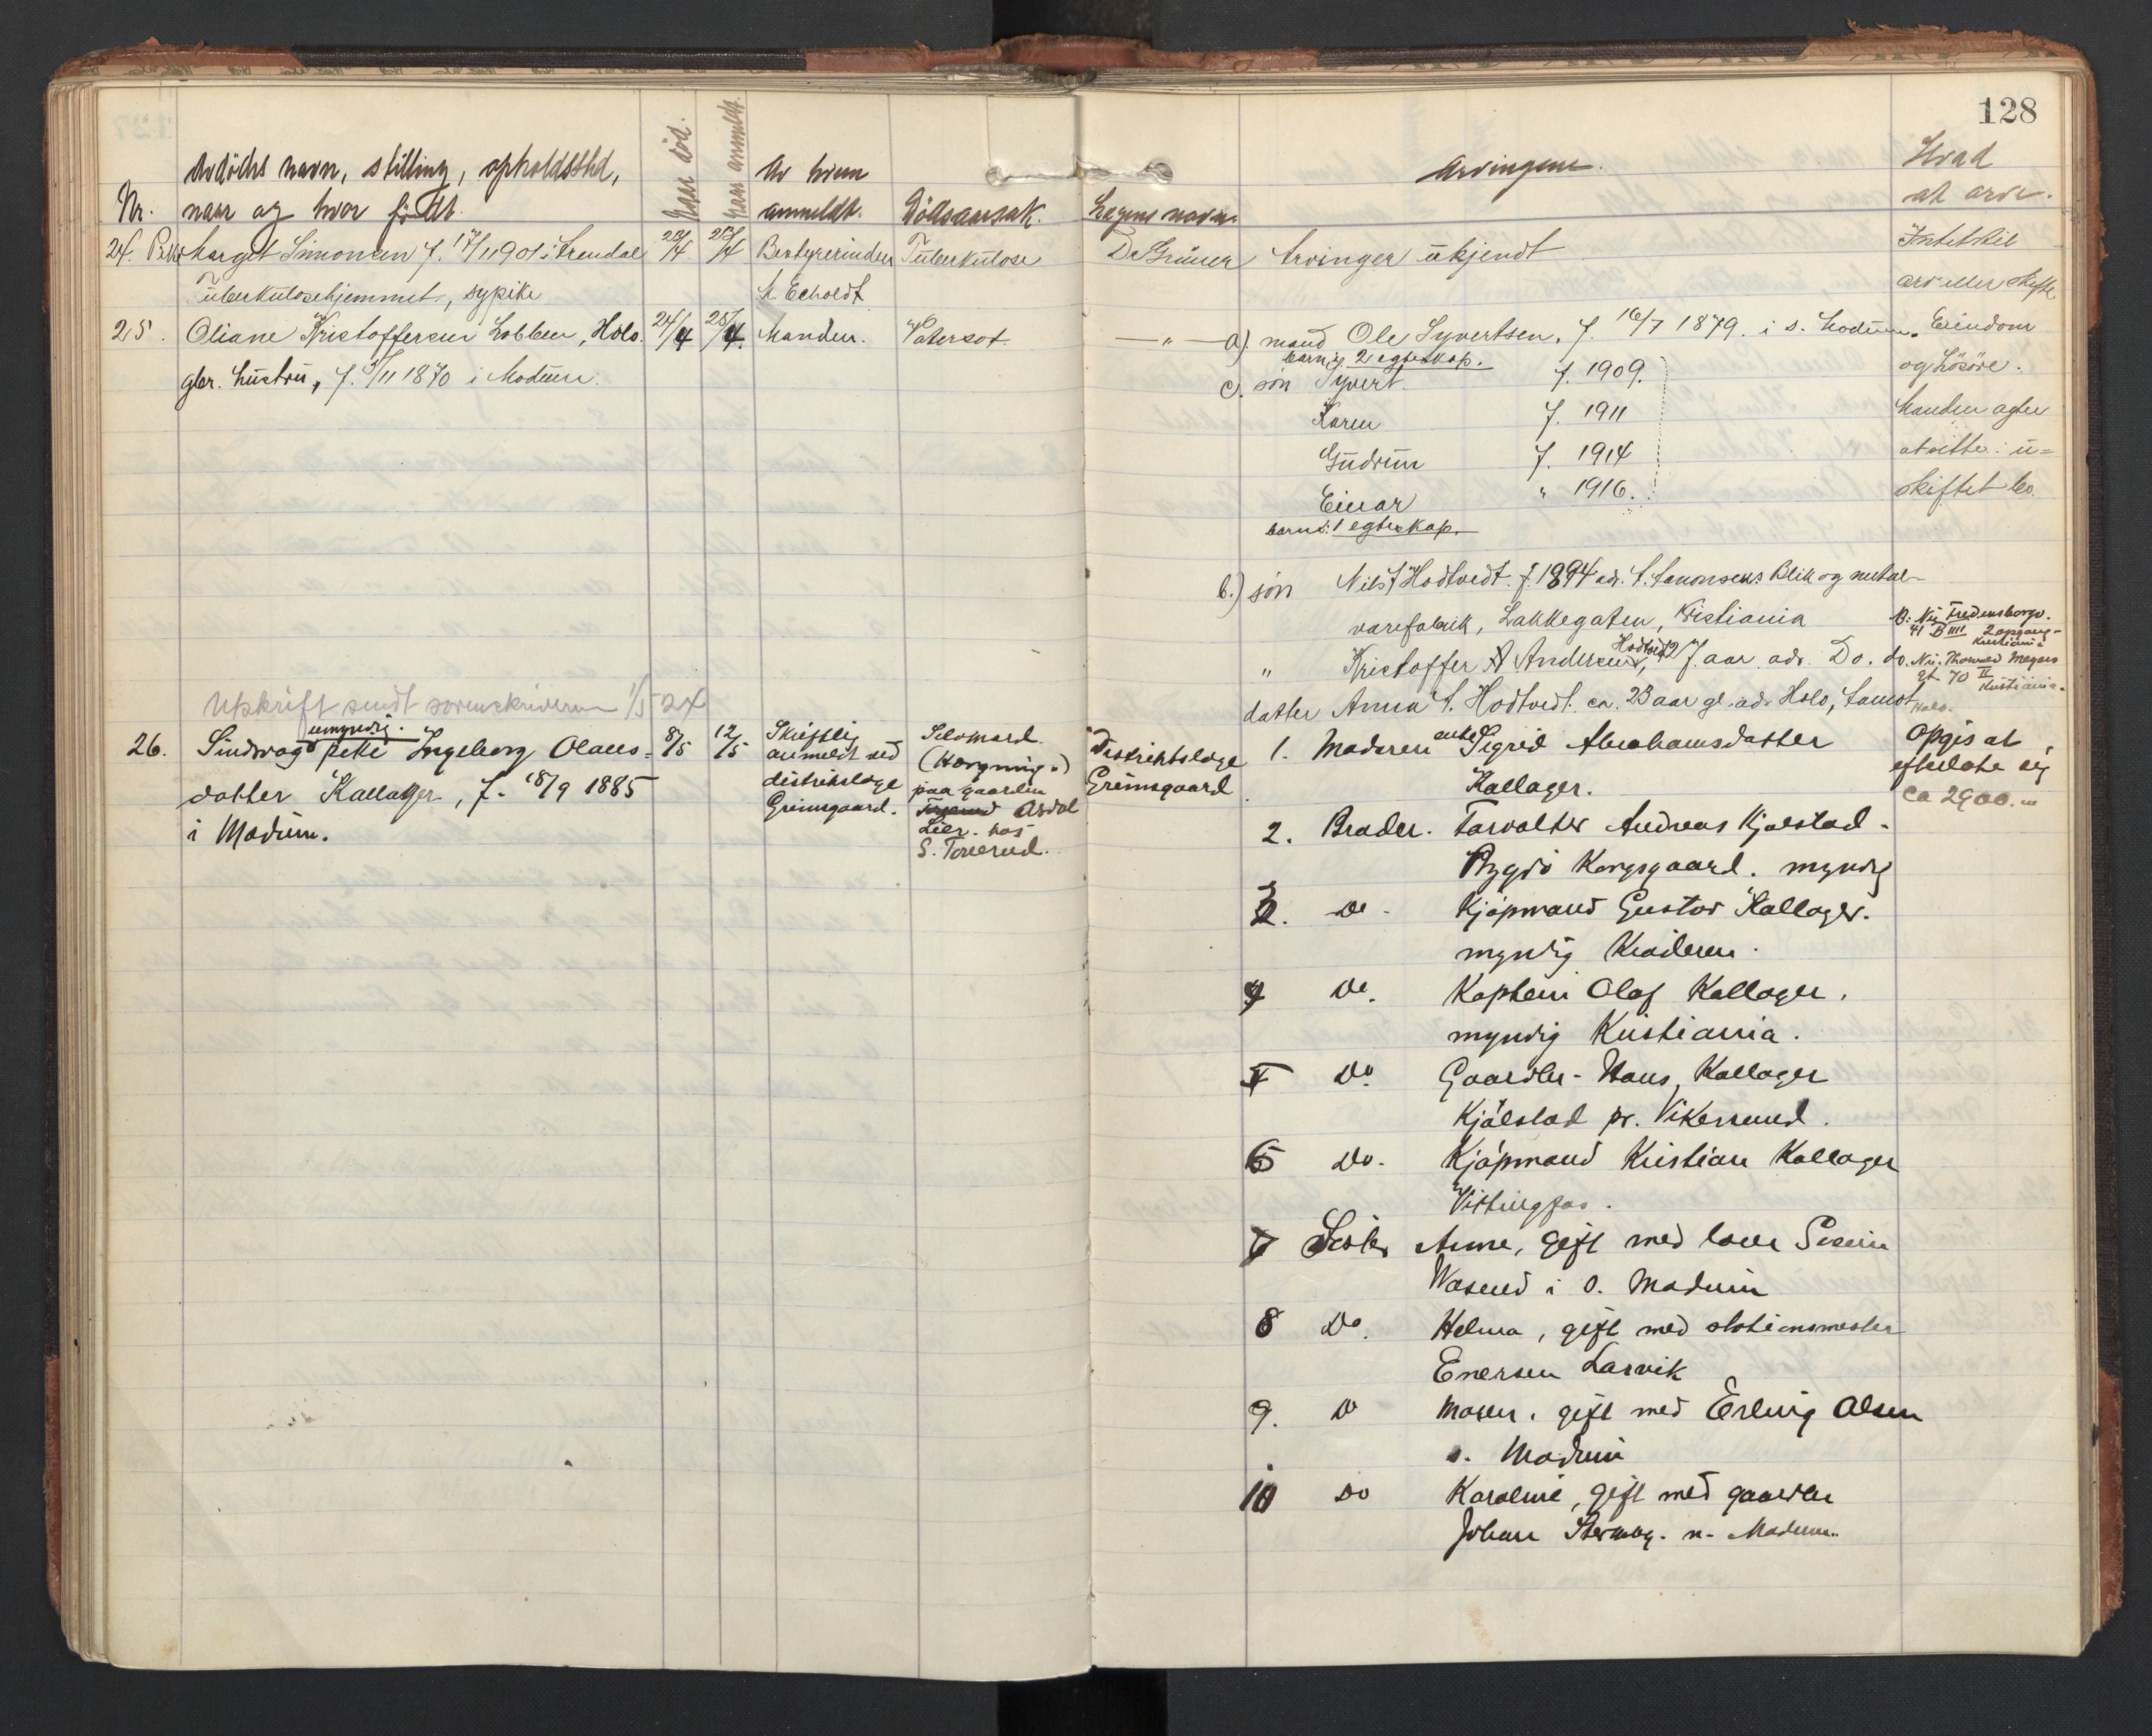 128
Avdödes navn, stilling, opholdssted,
Nr. naar og hvor födt.
Naar död.
Naar anmeldt.
Av hvem
anmeldt.
Dödsaarsak.
Lægens navn.
Arvingene.
Hvad
at arve.
24. Margit Simonsen f. 17/1 1901 i
Tuberkulosehjemmet, sypike
23/4
23/4
Bestyrerinden
Tuberkulose
Dr Grüner
Arvinger ukjendt
Intet til
arv eller skifte
25. Oliane Kristoffersen Lobben, Holo.
gbr. hustru, f. /11 1870 i Modum.
24/4
25/4.
Manden.
Vatersot.
— " —
a). mand Ole Syvertsen, f. 16/7 1879. i s. Modum.
barn i 2 egteskap.
c). sön Syvert. f. 1909.
Karen f. 1911
Gudrun f. 1914
Einar " 1916.
barn i 1 egteskap.
Eiendom
og lösöre.
Manden agter
at sitte i u=
skiftet bo.
b.) sön Nils Hodtvedt. f. 1894 adr. Blik og metal-
varefabrik, Lakkegaten, Kristiania
" Kristoffer A Andersen Hodtvedt, 27 aar adr. Do. do.
datter Anna Hodtvedt. ca. 23 aar gl. adr. Holo, Aamot
Fredensborgv.
41 B IIII 2 opgang-
Kristiania
Thorvald Meyers
gt 70 II
Kristiania.
Utskrift sendt sorenskriveren 1/5 24
26. Sindssvag umyndig. pike Ingeborg Olaus-
datter Kallager, f. 18/9 1885
i Modum.
8/5
12/5
Skriftlig
anmeldt ved
distriktslæge
Grimsgaard.
Selvmord
(Hængning.)
paa gaarden
Asdal
Lier. hos
S. Tonerud.
Distriktslæge
Grimsgaard
1. Moderen enke Sigrid Abrahamsdatter
Kallager.
Opgis at
efterlate sig
ca 2900.
2. Broder. Forvalter Andreas Kjølstad.
Bygdö Kongsgaard. myndig
3. Do. Kjöpmand Gustav Kallager.
myndig Krøderen.
4 Do. Kaptein Olaf Kallager.
myndig Kristiania.
5 Do. Gaardbr. Hans Kallager
Kjölstad pr. Vikersund.
6 Do. Kjöpmand Kristian Kallager
Vittingfos.
7 Søster Anne, gift med
i s. Modum
8 Do. Helma, gift med stationsmester
Enersen Larvik
9. Do Maren, gift med Erling Olsen
s. Modum
10 Do Karoline, gift med gaardbr
Johan n. Modum.